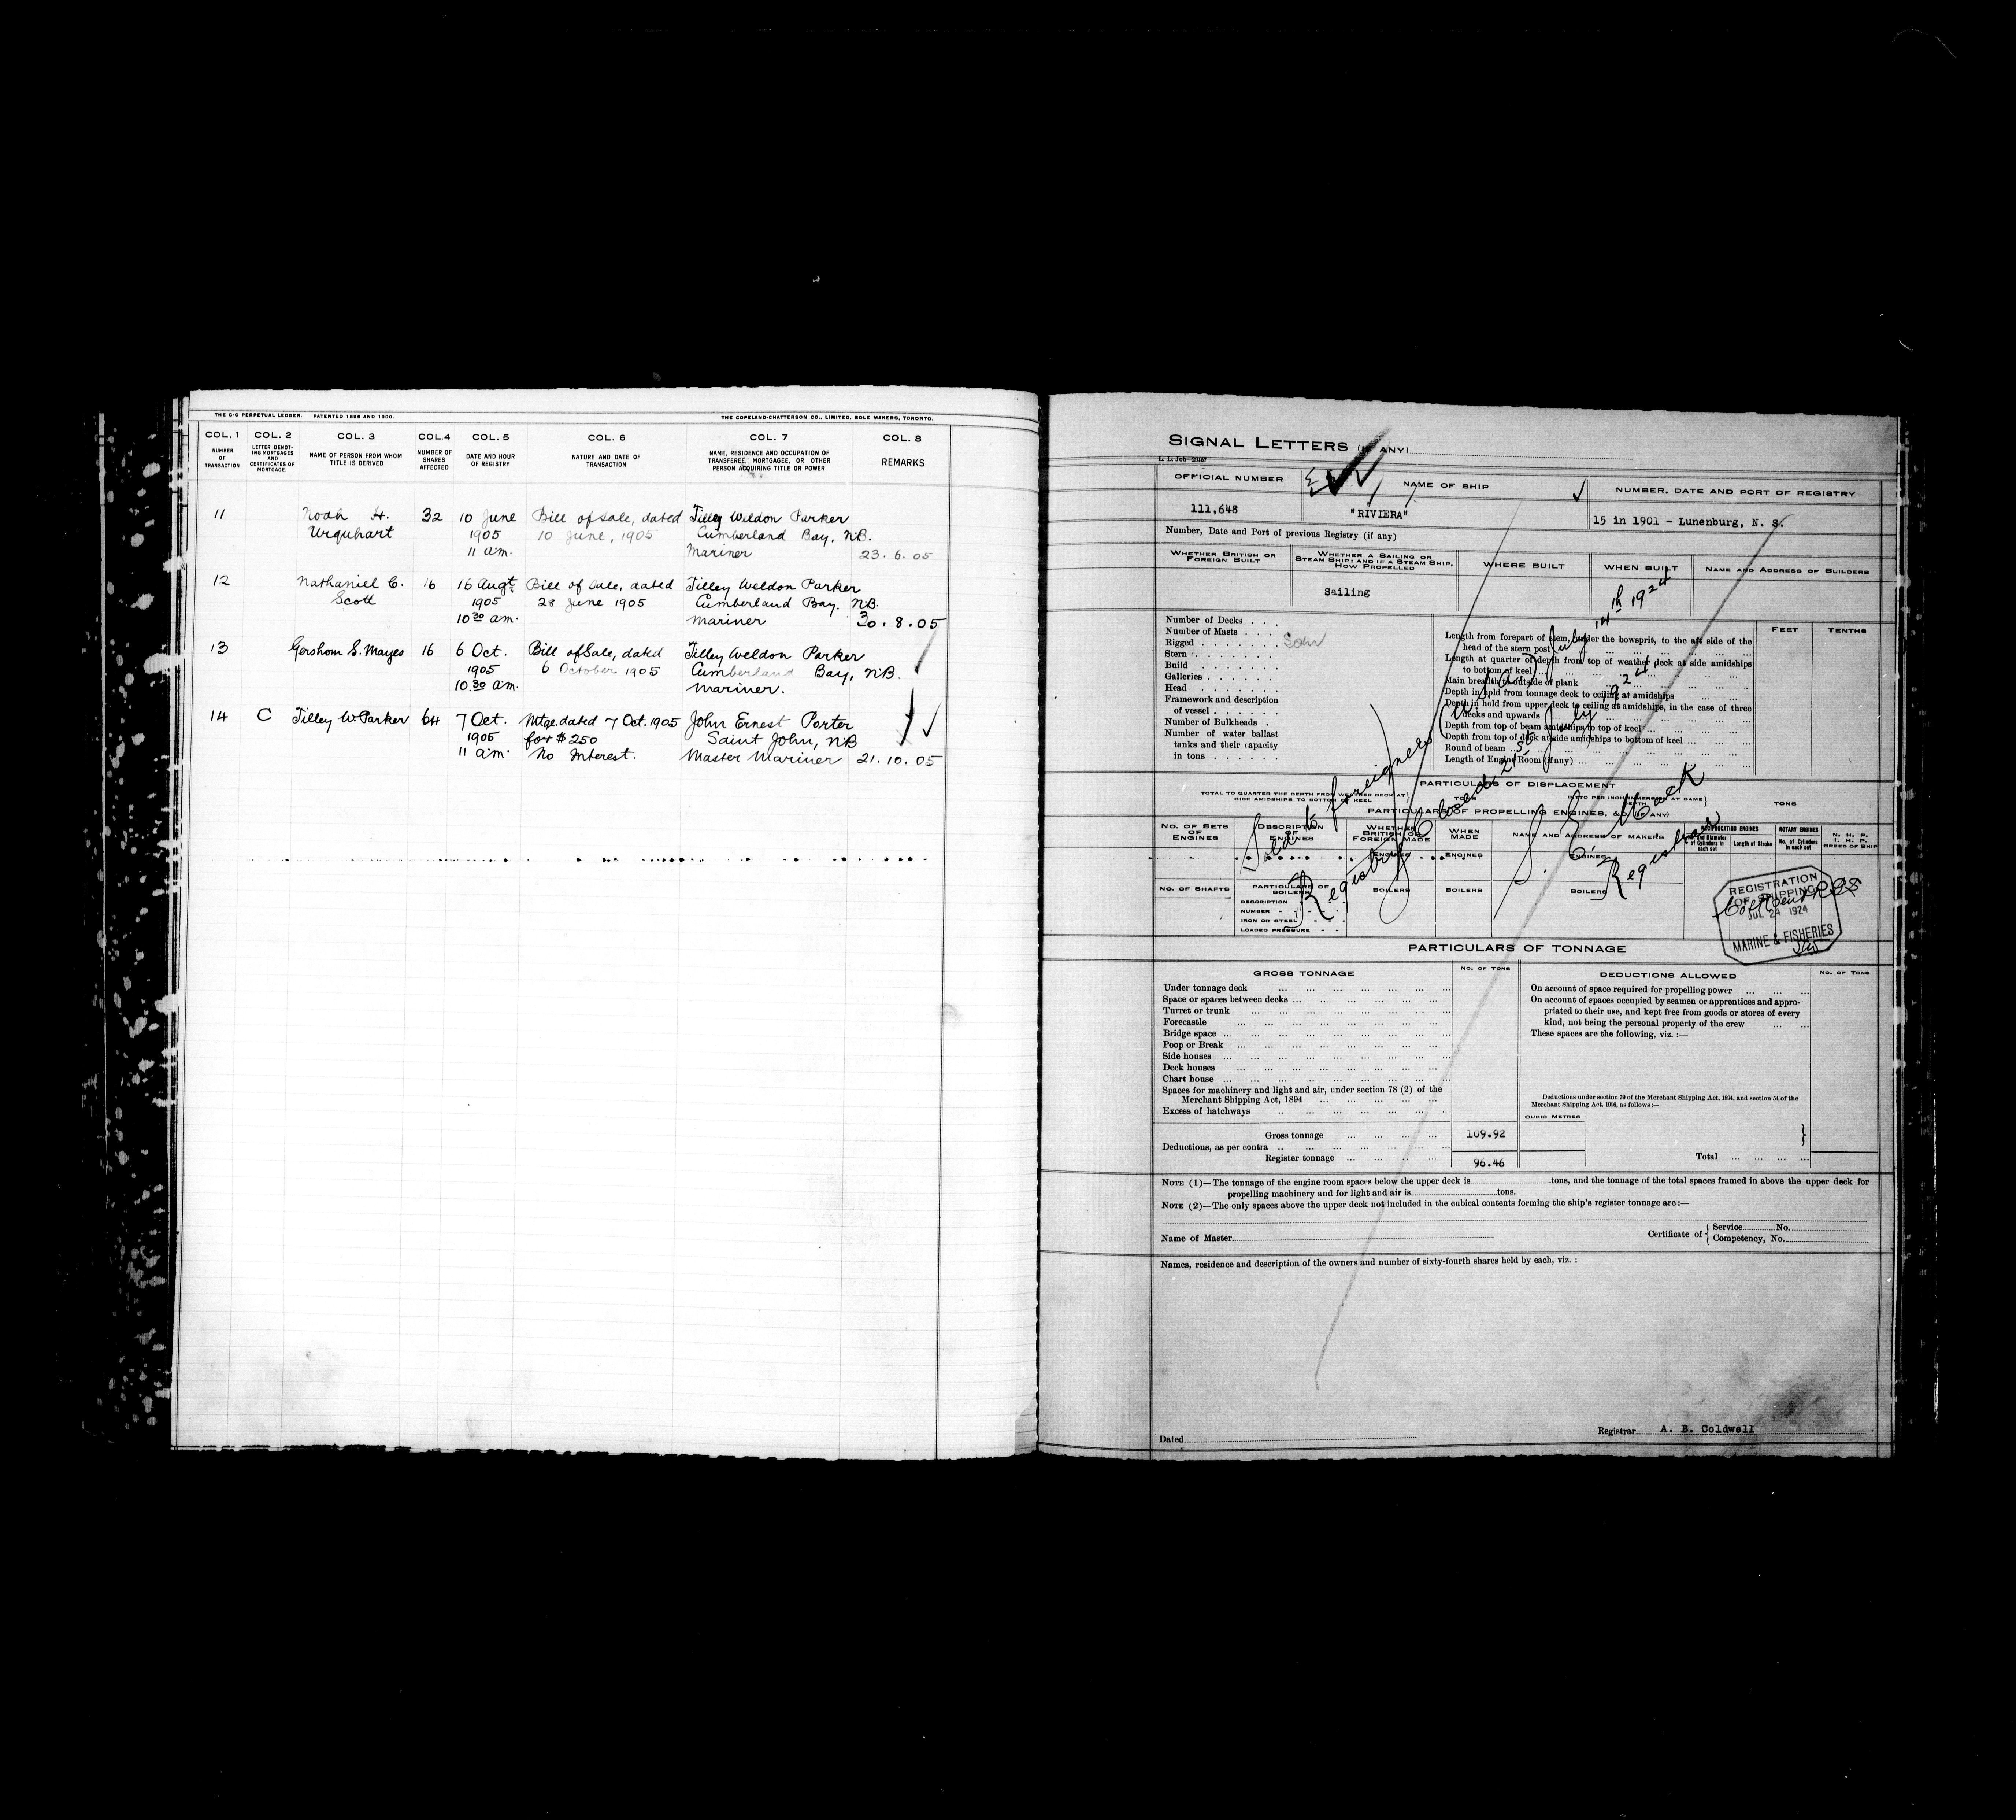 THE C-C PERPETUAL LEDGER. PATENTED 1896 AND 1900. THE COPELAND-CHATTERSON CO., LIMITED, SOLE MAKERS, TORONTO.
COL. 1 COL. 2 COL. 3 COL. 4 COL. 5 COL. 6 COL. 7 COL. 8
NUMBER OF TRANSACTION LETTER DENOTING MORTGAGES AND CERTIFICATES OF MORTGAGE. NAME OF PERSON FROM WHOM TITLE IS DERIVED NUMBER OF SHARES AFFECTED DATE AND HOUR OF REGISTRY NATURE AND DATE OF TRANSACTION NAME, RESIDENCE AND OCCUPATION OF TRANSFEREE, MORTGAGEE, OR OTHER PERSON ACQUIRING TITLE OR POWER REMARKS
11 Noah H. 32 10 June Bill of Sale, dated Tilley Weldon Parker
Urquhart 1905 10 June, 1905 Cumberland Bay, N.B.
11 am. Mariner 23.6.05
12 Nathaniel C. 16 16 Augt. Bill of Sale, dated Tilley Weldon Parker
Scott 1905 28 June 1905 Cumberland Bay. N.B.
10 30 am. Mariner 30.8.05
13 Gershom S. Mayes 16 6 Oct. Bill of Sale, dated Tilley Weldon Parker
1905 6 October 1905 Cumberland Bay, N.B.
10.30 am. Mariner.
14 C Tilley W. Parker 64 7 Oct. Mtge. dated 7 Oct. 1905 John Ernest Porter
1905 for $250 Saint John, N.B
11 am. No Interest. Master Mariner 21.10.05
SIGNAL LETTERS (IF ANY)
L. I. Job
OFFICIAL NUMBER NAME OF SHIP NUMBER, DATE AND PORT OF REGISTRY
111,648 "RIVIERA" 15 in 1901 - Lunenburg, N. S.
Number, Date and Port of previous Registry (if any)
WHETHER BRITISH OR FOREIGN BUILT WHETHER A SAILING OR STEAM SHIP: AND IF A STEAM SHIP, HOW PROPELLED WHERE BUILT WHEN BUILT NAME AND ADDRESS OF BUILDERS
Sailing
Number of Decks
Number of Masts
Rigged Schr
Stern
Build
Galleries
Head
Framework and description
of vessel
Number of Bulkheads
Number of water ballast
tanks and their capacity
in tons
FEET TENTHS
Length from forepart of stem, under the bowsprit, to the aft side of the
head of the stern post
Length at quarter of depth from top of weather deck at side amidships
to bottom of keel
Main breadth to outside of plank
Depth in hold from tonnage deck to ceiling at amidships
Depth in hold from upper deck to ceiling at amidships, in the case of three
decks and upwards
Depth from top of beam amidships to top of keel
Depth from top of deck at side amidships to bottom of keel
Round of beam
Length of Engine Room (if any)
Sold to foreigners July 14th 1924
Registry Closed 21st July 1924
S. E. Mack
Registrar
PARTICULARS OF DISPLACEMENT
TOTAL TO QUARTER THE DEPTH FROM WEATHER DECK AT SIDE AMIDSHIPS TO BOTTOM OF KEEL TONS DITTO PER INCH IMMERSION AT SAME DEPTH TONS
PARTICULARS OF PROPELLING ENGINES, &C. (IF ANY)
NO. OF SETS OF ENGINES DESCRIPTION OF ENGINES WHETHER BRITISH OR FOREIGN MADE WHEN MADE NAME AND ADDRESS OF MAKERS RECIPROCATING ENGINES ROTARY ENGINES N. H. P. I. H. P. SPEED OF SHIP
No. and Diameter of Cylinders in each set Length of Stroke No. of Cylinders in each set
ENGINES ENGINES ENGINES
NO. OF SHAFTS PARTICULARS OF BOILERS BOILERS BOILERS BOILERS
DESCRIPTION
NUMBER
IRON OR STEEL
LOADED PRESSURE
REGISTRATION
OF SHIPPING
JUL 24 1924
MARINE & FISHERIES
PARTICULARS OF TONNAGE
GROSS TONNAGE NO. OF TONS DEDUCTIONS ALLOWED NO. OF TONS
Under tonnage deck
Space or spaces between decks
Turret or trunk
Forecastle
Bridge space
Poop or Break
Side houses
Deck houses
Chart house
Spaces for machinery and light and air, under section 78 (2) of the
Merchant Shipping Act, 1894
Excess of hatchways
On account of space required for propelling power
On account of spaces occupied by seamen or apprentices and appro-
priated to their use, and kept free from goods or stores of every
kind, not being the personal property of the crew
These spaces are the following, viz. :—
Deductions under section 79 of the Merchant Shipping Act, 1894, and section 54 of the
Merchant Shipping Act, 1906, as follows :—
CUBIC METRES
Gross tonnage 109.92
Deductions, as per contra
Register tonnage 96.46
Total
NOTE (1)—The tonnage of the engine room spaces below the upper deck is tons, and the tonnage of the total spaces framed in above the upper deck for
propelling machinery and for light and air is tons.
NOTE (2)—The only spaces above the upper deck not included in the cubical contents forming the ship's register tonnage are :—
Name of Master Certificate of { Service No.
Competency, No.
Names, residence and description of the owners and number of sixty-fourth shares held by each, viz. :
Dated Registrar A. B. Coldwell